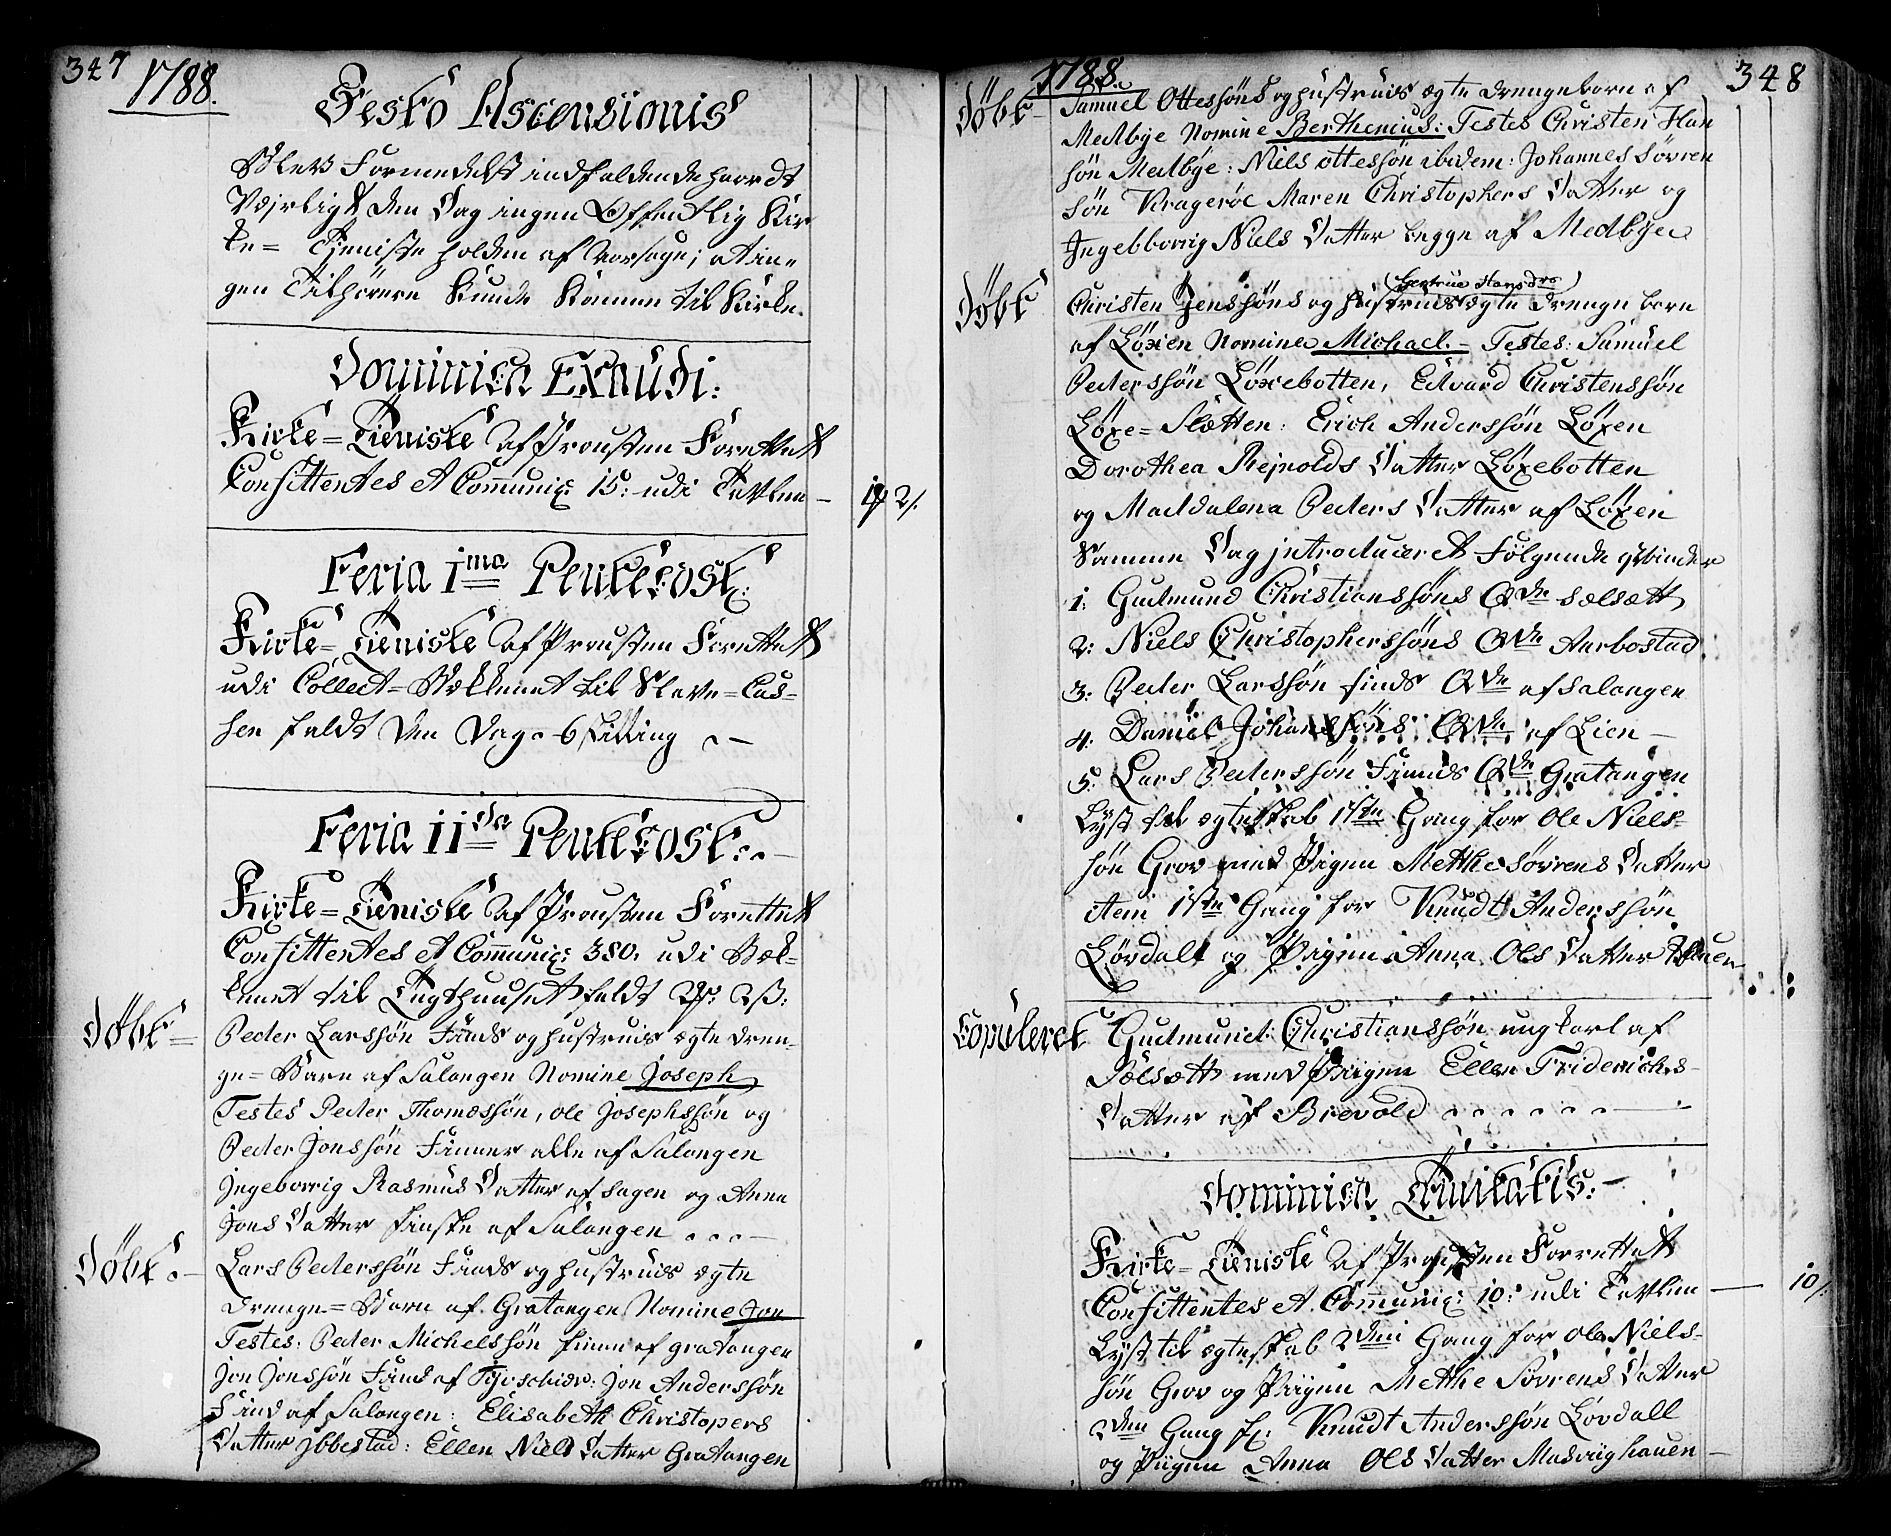 347
1788.
Festo Ascensionis
Blev Formedelst indfaldende haardt
Vejrligt den Dag ingen Offentlig Kir
ke= Tjeniste holden af Aarsage; at in=
gen Tilhörere Kunde Komme til Kirke.
Dominica Exaudi:
Kirke=Tieniste af Prousten Forettet
Confittentes et Communic: 15: udi Tavlen —
2/.
Feria 1ma Pentecost:
Kirke=Tieniste af Prousten Forettet
udi Collect=Bekkenet til Slave=Cas=
sen faldt den Dag 6 skilling
Feria IIda Pentecost:
Kirke=Tieniste af Prousten Forettet
Confittentes et Communic: 380. udi Bek=
kenet til Tugthuuset faldt 2ß:
Döbt=
Peder Larssön Finds og hustrues ægte dren=
ge=Barn af Salangen Nomine Joseph
Testes Peder Thomæssön, ole Josephssön og
Peder Jonssön Finner alle af Salangen
Ingeborrig Rasmus Datter af sagen og Anna
Jons Datter finske af Salangen
Döbt:
Lars Pederssön Finds og hustrues ægte
Drenge=Barn af Gratangen Nomine Jon
Testes: Peder Michelssön finn af gratangen
Jon Jonssön Find af: Jon Anderssön
Find af Salangen: Elisabeth Christopers
Datter Ibbestad: Ellen Niels Datter Gratangen
1788.
348
Döbt
Samuel Ottessöns og hustrues ægte drengebarn af
Medbye Nomine Berthenius: Testes Christen Han
sön Medbye: Niels ottessön ibidem: Johannes Sövren
sön Krageröe Maren Christophers Datter og
Ingebborrig Niels Datter begge af Medbye
Döbt
(Gertrue Hansdr)
Christen Jenssöns og hustrues ægte Drenge barn
af Löxen Nomine Michael.— Testes: Samuel
Pederssön Löxebotten, Edvard Christenssön
Löxe=Slætten: Erich Anderssön Löxen
Dorothea Rejnolds Datter Löxebotten
og Madalena Peders Datter af Löxen
Samme Dag introduceret Fölgende qvinder
1: Gudmund Christianssöns Qde sælsætt
2: Niels Christopherssöns Qde Aarbostad
3: Peder Larssön finds Qde af salangen
4: Daniel Johanssöns Qde af Lien —
5: Lars Pederssön Finds Qde Gratangen
Lyst til ægteskab 1ste Gang for Ole Niels=
sön Grov med Piigen Methe Sövrens Datter
item 1ste Gang for Knudt Anderssön
Lövdall og Piigen Anna Ols Datter
Copuleret
Gudmund Christianssön ungkarl af
Sælsætt med Piigen Ellen Friderichs=
Datter af Brevold
Dominica Trinitatis:
Kirke=Tieniste af Prousten Forrettet
Confittentes et Communic: 10: udi Tavlen —
10/.
Lyst til ægteskab 2den Gang for Ole Niels=
sön Grov og Piigen Methe Sövrens Datter
2den Gang f: Knudt Anderssön Lövdall
og Piigen Anna Ols Datter Masviighauen —